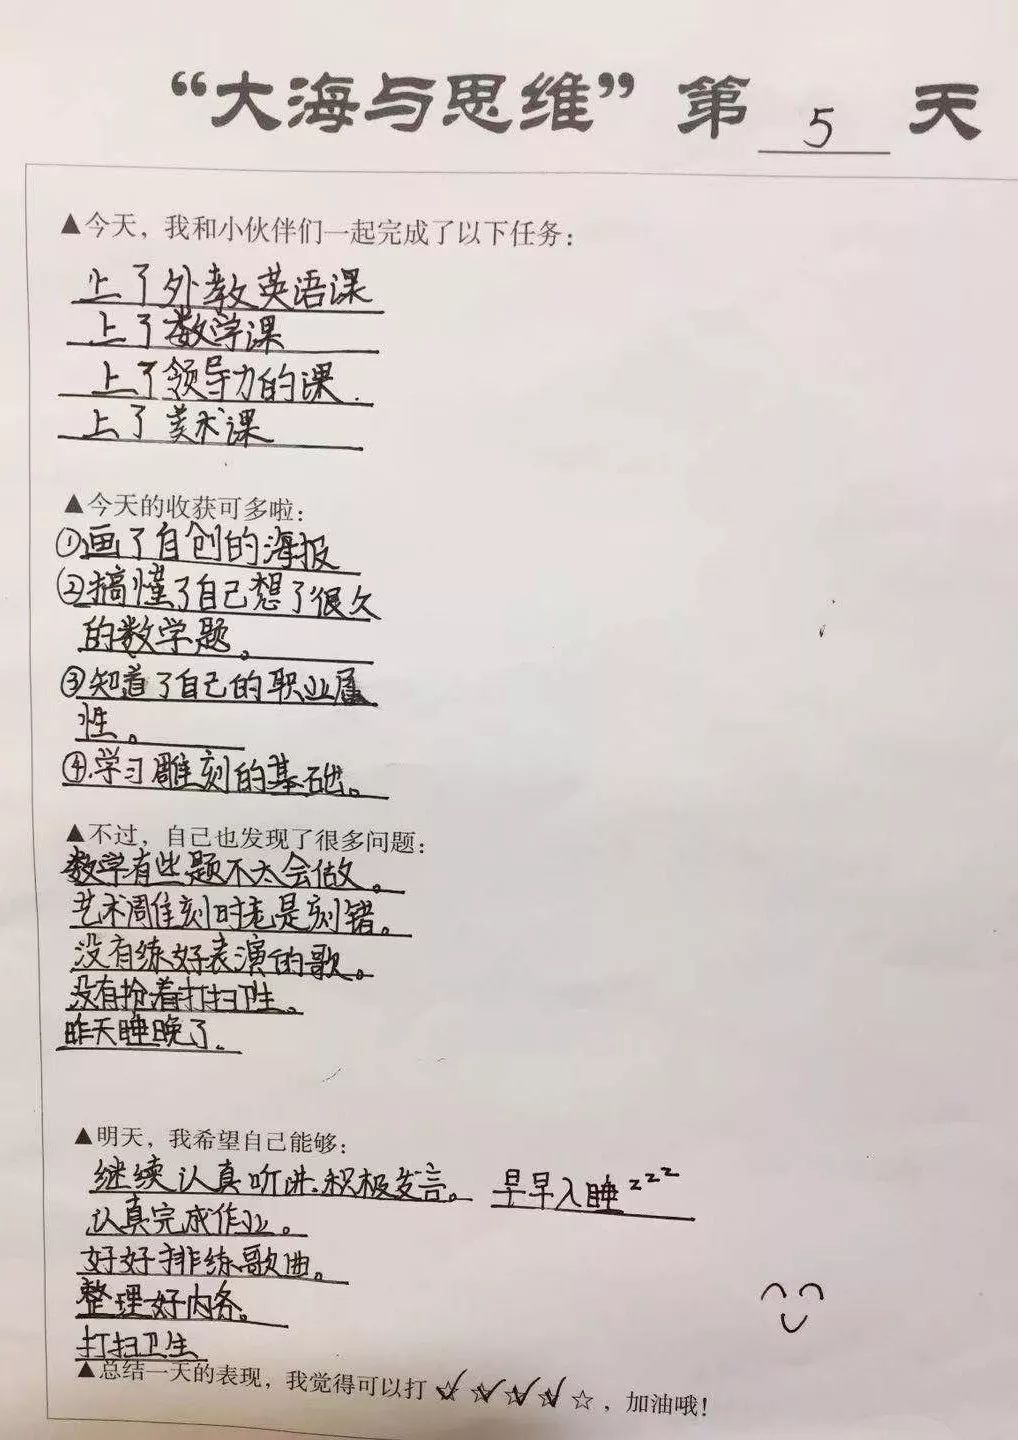 “大海与思维”第 5 天
▲今天，我和小伙伴们一起完成了以下任务：
上了外教英语课
上了数学课
上了领导力的课.
上了美术课
▲今天的收获可多啦：
①画了自创的海报
②搞懂了自己想了很久
的数学题。
③知道了自己的职业属
性。
④.学习雕刻的基础。
▲不过，自己也发现了很多问题：
数学有些题不太会做。
艺术雕刻时老是刻错。
没有练好表演的歌。
没有抢着打扫卫生。
昨天睡晚了.
▲明天，我希望自己能够：
继续认真听讲.积极发言。 早早入睡zzz
认真完成作业。
好好排练歌曲。
整理好内务。
打扫卫生
▲总结一天的表现，我觉得可以打☆☆☆☆☆，加油哦！